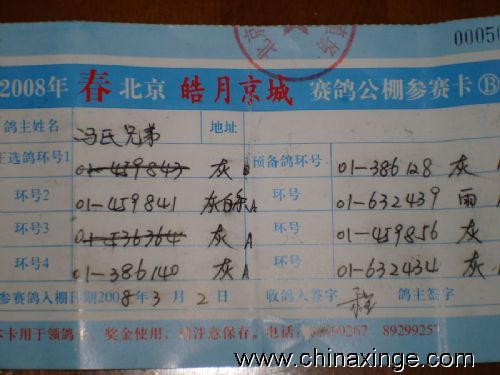 00050
2008年 春 北京 皓月京城 赛鸽公棚参赛卡 B
鸽主姓名 冯氏兄弟 地址
主选鸽环号1 01-459843 灰 预备鸽环号 01-386128 灰
环号2 01-459841 灰 A 环号 01-632439 雨
环号3 01-536364 灰 A 环号 01-459856 灰
环号4 01-386140 灰 A 环号 01-632434 灰
参赛鸽入棚日期2008年3月2日 收鸽人签字 鸽主签字
本卡用于领鸽 、奖金使用，请注意保存。电话： 89299257
www.chinaxinge.com